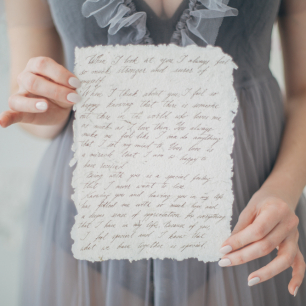 When I look at you I always feel
so much stronger and surer of
myself.
When I think about you I feel so
happy knowing that there is someone
out there in the world who knows me
so much as I love them. You always
make me feel like I can do anything
that I set my mind to. Your love is
a miracle that I am so happy to
have
Being with you is a special feeling
that I always want to
Knowing you and having you in my life
has filled me with so much love and
a deeper sense of appreciation for everything
that I have in my life. Because of you
I feel special and I know that
what we have together is special